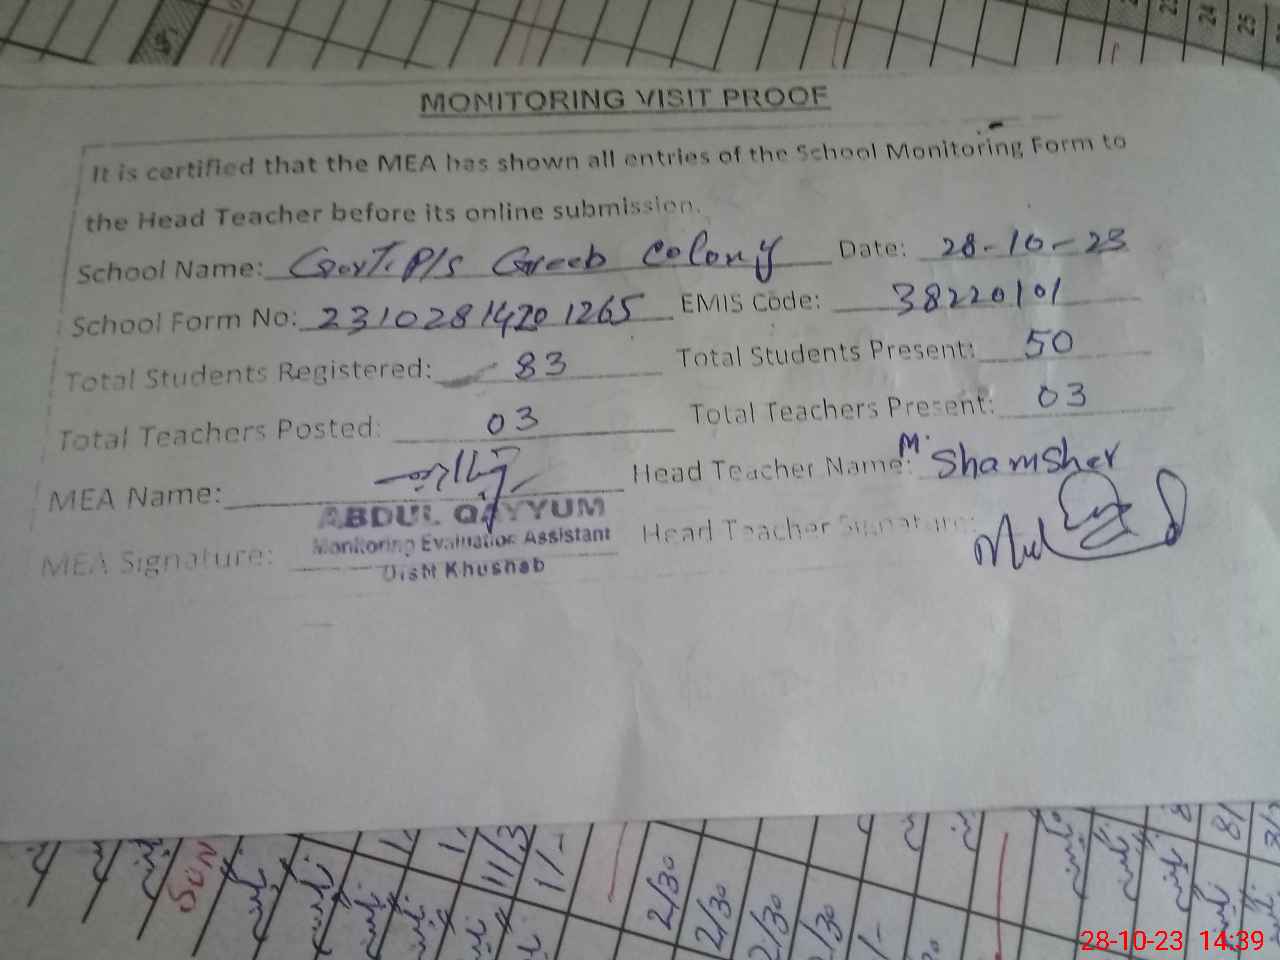 MONITORING VISIT PROOF
It is certified that the MEA has shown all entries of the School Monitoring Form to
the Head Teacher before its online submission.
School Name: Govt. P/S Greeb Colony Date: 28-10-23
School Form No: 2310281420 1265 EMIS Code: 38220101
Total Students Registered: 83 Total Students Present: 50
Total Teachers Posted: 03 Total Teachers Present: 03
MEA Name: Head Teacher Name: M. Shamsher
ABDUL QAYYUM
Monitoring Evaluation Assistant
MEA Signature: Head Teacher Signature:
Distt Khushab
23
24
25
SUN
11/3
1/-
2/30
2/30
2/30
/30
1/-
8/
28-10-23 14:39